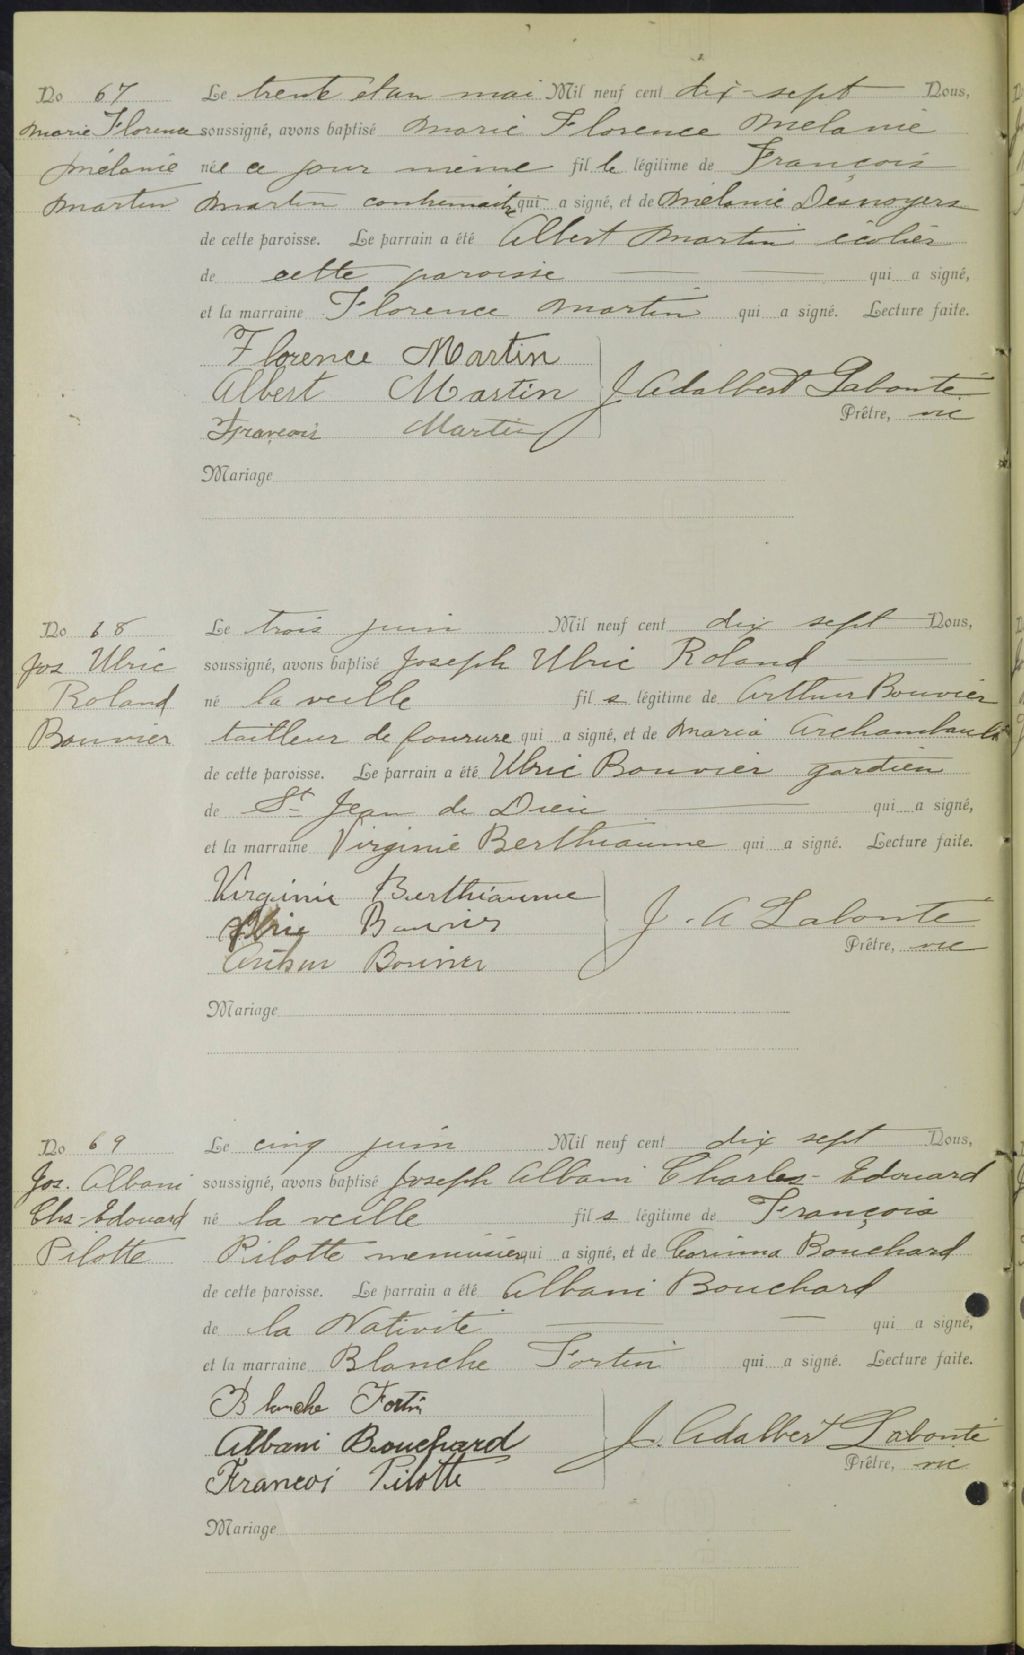 No 67 Le trente et un mai Mil neuf cent dix-sept Nous,
Marie Florence soussigné, avons baptisé Marie Florence Mélanie
Mélanie née ce jour même fille légitime de François
Martin Martin contremaître qui a signé, et de Mélanie Desnoyers
de cette paroisse. Le parrain a été Albert Martin écolier
de cette paroisse qui a signé,
et la marraine Florence Martin qui a signé. Lecture faite.
Florence Martin
Albert Martin J Adalbert Labonté
François Martin Prêtre, vic
Mariage
No 68 Le trois juin Mil neuf cent dix sept Nous,
Jos Ulric soussigné, avons baptisé Joseph Ulric Roland
Roland né la veille fils légitime de Arthur Bouvier
Bouvier tailleur de fourure qui a signé, et de Maria Archambault
de cette paroisse. Le parrain a été Ulric Bouvier gardien
de St Jean de Dieu qui a signé,
et la marraine Virginie Berthiaume qui a signé. Lecture faite.
Virginie Berthiaume
Ulric Bouvier J. A Labonté
Arthur Bouvier Prêtre, vic
Mariage
No 69 Le cinq juin Mil neuf cent dix sept Nous,
Jos. Albani soussigné, avons baptisé Joseph Albani Charles-Edouard
Chs-Edouard né la veille fils légitime de François
Pilotte Pilotte menuisier qui a signé, et de Corinna Bouchard
de cette paroisse. Le parrain a été Albani Bouchard
de la Nativité qui a signé,
et la marraine Blanche Fortin qui a signé. Lecture faite.
Blanche Fortin
Albani Bouchard J. Adalbert Labonté
Francois Pilotte Prêtre, vic
Mariage